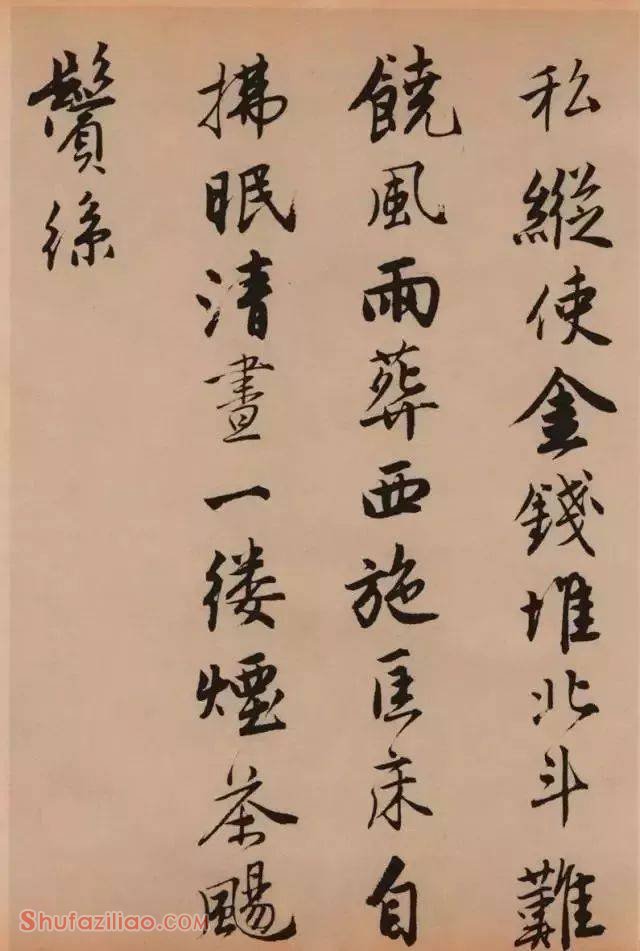 私縱使金錢堆北斗難
饒風雨葬西施匡床自
拂眠清晝一縷煙茶颺
鬢絲
Shufaziliao.com